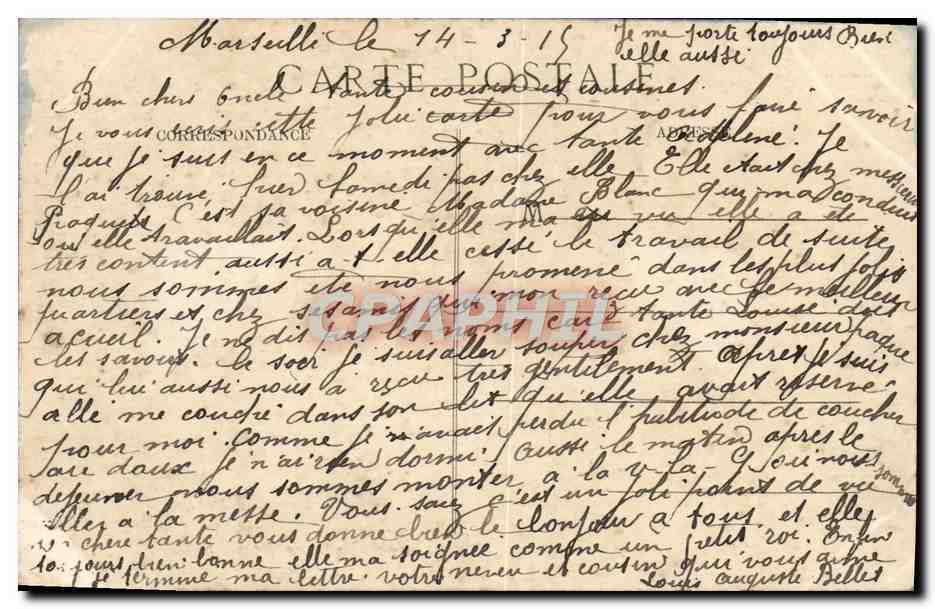 Marseille le 14-3-15
Je me porte toujours Bien
elle aussi
CARTE POSTALE
Bien chers Oncle Tante cousin et cousines.
Je vous cette jolie carte pour vous faire savoir
CORRESPONDANCE
ADRESSE
que je suis en ce moment avec tante Je
l'ai trouvé hier Samedi pas chez elle. Elle était chez messieur
Paquet C'est sa voisine Madame Blanc qui ma conduit
ou elle travaillait. Lorsqu'elle ma vu elle a été
très content aussi a-t-elle cessé le travail de suite
nous sommes été nous promené dans les plus jolis
quartiers et chez ses amis qui mon reçu avec le meilleur
acueil. Je ne dis pas les noms car tante Louise doit
les savoir. le soir je suis aller souper chez monsieur paque
qui lui aussi nous a reçu très gentilement. Après je suis
alle me couché dans son lit qu'elle avait réservé
pour moi. Comme je n'avait perdu l'habitude de coucher
are daux je n'ai rien dormi. Aussi le matin après le
dejeuner nous sommes monter a la V-la-G ou nous
sommes
aller a la messe. Vous savez c'est un joli point de vu
chere tante vous donne bien le bonjour a tous et elle
toujours bien bonne elle ma soignée comme un petit roi. Enfin
je termine ma lettre. votre neveu et cousin qui vous aime
Louis Auguste Bellet
CPAPHIL